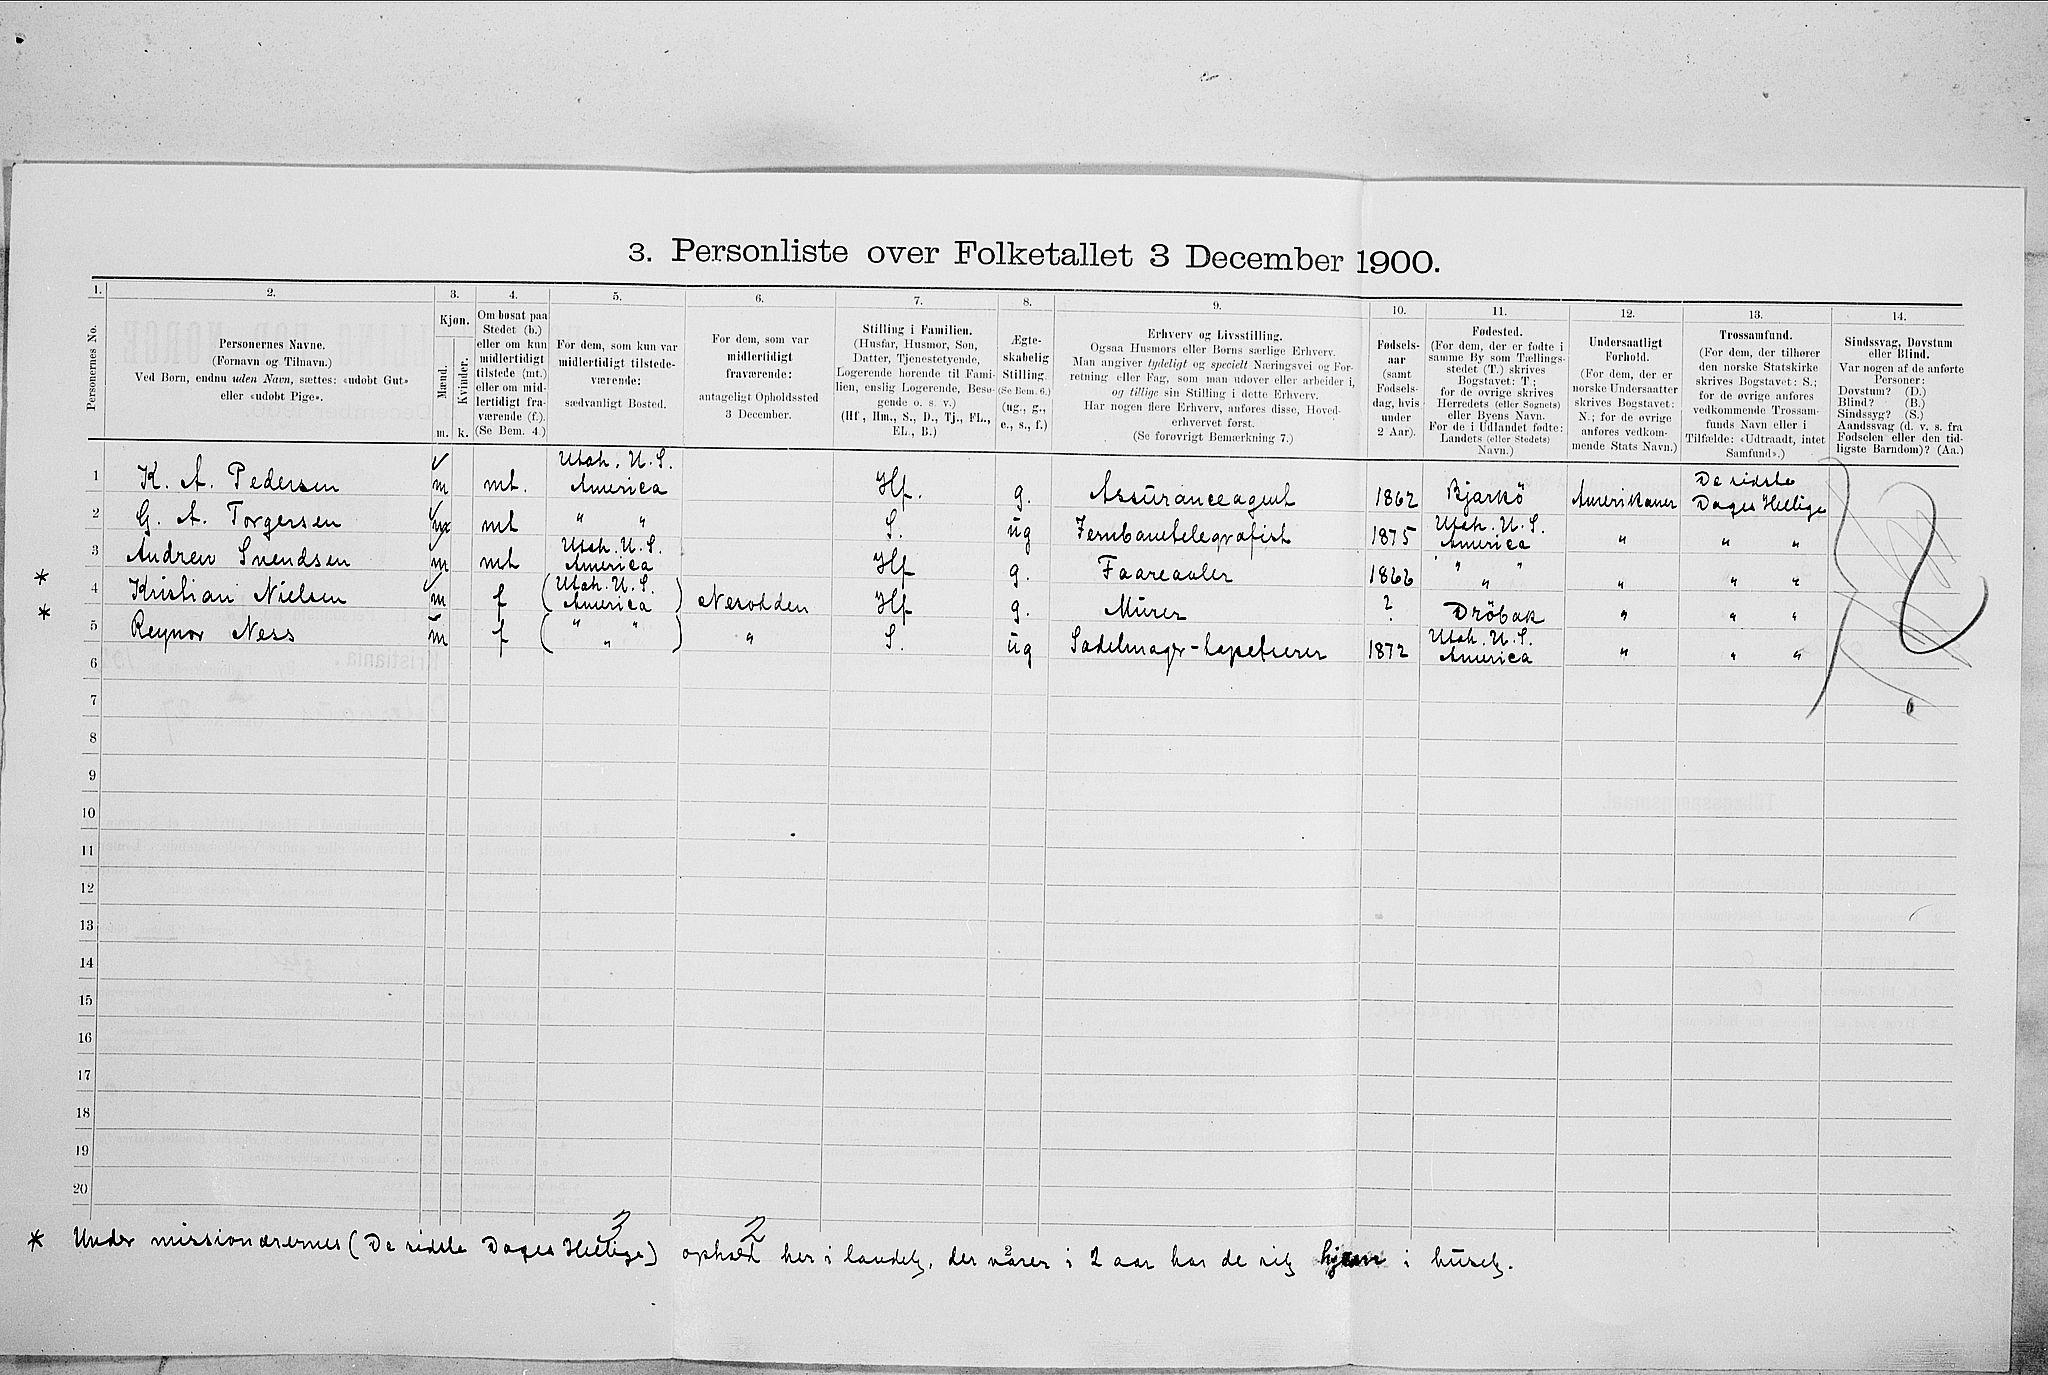 3. Personliste over Folketallet 3 December 1900.
1. 2. 3. 4. 5. 6. 7. 8. 9. 10. 11. 12. 13. 14.
Personernes No.
Personernes Navne.
(Fornavn og Tilnavn.)
Ved Børn, endnu uden Navn, sættes: «udøbt Gut»
eller «udøbt Pige».
Kjøn.
Mænd.
Kvinder.
m. k.
Om bosat paa
Stedet (b.)
eller om kun
midlertidigt
tilstede (mt.)
eller om mid-
lertidigt fra-
værende (f.).
(Se Bem. 4.)
For dem, som kun var
midlertidigt tilstede-
værende:
sædvanligt Bosted.
For dem, som var
midlertidigt
fraværende:
antageligt Opholdssted
3 December.
Stilling i Familien.
(Husfar, Husmor, Søn,
Datter, Tjenestetyende,
Logerende hørende til Fami-
lien, enslig Logerende, Besø-
gende o. s. v.)
(Hf, Hm., S., D., Tj., FL.,
EL., B.)
Ægte-
skabelig
Stilling.
(Se Bem. 6.)
(ug., g.,
e., s., f.)
Erhverv og Livsstilling.
Ogsaa Husmors eller Børns særlige Erhverv.
Man angiver tydeligt og specielt Næringsvei og For-
retning eller Fag, som man udøver eller arbeider i,
og tillige sin Stilling i dette Erhverv.
Har nogen flere Erhverv, anføres disse, Hoved-
erhvervet først.
(Se forøvrigt Bemærkning 7.)
Fødsels-
aar
(samt
Fødsels-
dag, hvis
under
2 Aar).
Fødested.
(For dem, der er fødte i
samme By som Tællings-
stedet (T.) skrives
Bogstavet: T;
for de øvrige skrives
Herredets (eller Sognets)
eller Byens Navn.
For de i Udlandet fødte:
Landets (eller Stedets)
Navn.)
Undersaatligt
Forhold.
(For dem, der er
norske Undersaatter
skrives Bogstavet:
N.; for de øvrige
anføres vedkom-
mende Stats Navn.)
Trossamfund.
(For dem, der tilhører
den norske Statskirke
skrives Bogstavet: S.;
for de øvrige anføres
vedkommende Trossam-
funds Navn eller i
Tilfælde: «Udtraadt, intet
Samfund».)
Sindssvag, Døvstum
eller Blind.
Var nogen af de anførte
Personer:
Døvstum? (D.)
Blind? (B.)
Sindssyg? (S.)
Aandssvag (d. v. s. fra
Fødselen eller den tid-
ligste Barndom)? (Aa.)
1 K. A. Pedersen m mt. Utah. U. S. America Hf. g. Assuranceagent 1862 Bjarkö Amerikaner De sidste Dages Hellige
2 G. A. Torgersen m mt " " S. ug Jernbanetelegrafist 1875 Utah. U. S. America " " "
3 Andrew Svendsen m mt Utah. U. S. America Hf g. Faareavler 1866 " " " " "
* 4 Kristian Nielsen m f (Utah. U. S. America) Nesodden Hf g. Murer ? Dröbak " " "
* 5 Reynor Ness m f (" " ") " S. ug Sadelmager-tapetserer 1872 Utah. U. S. America " " "
6
7
8
9
10
11
12
13
14
15
16
17
18
19
20
3 2
* Under missionærernes (De sidste Dages Hellige) ophold her i landet, der varer i 2 aar har de sit hjem i huset.